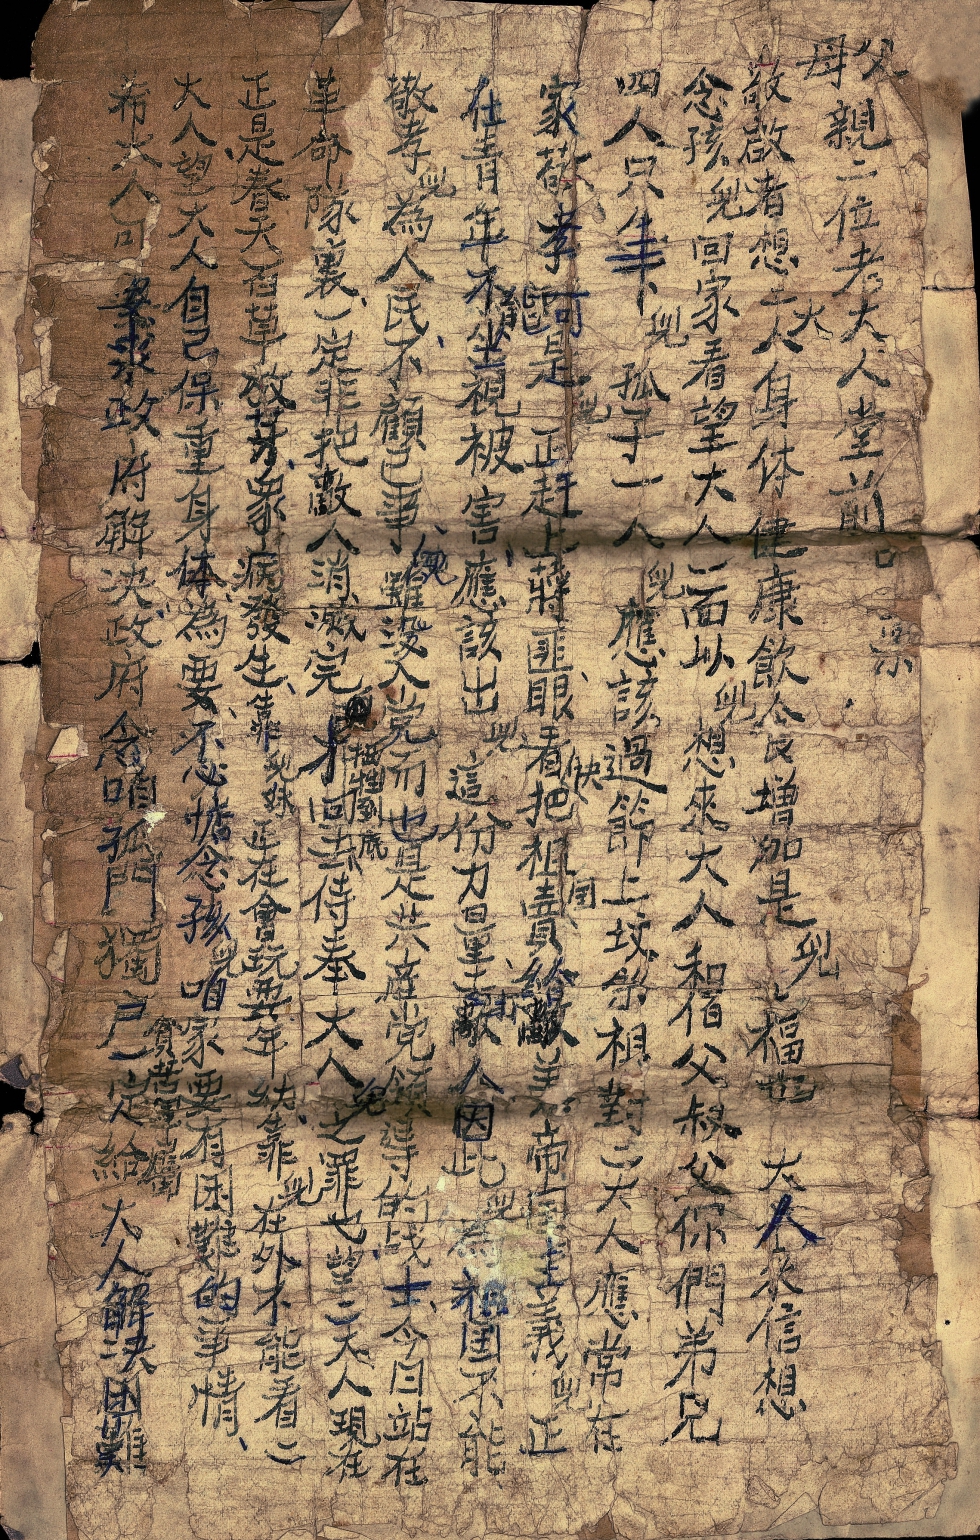 父母親二位老大人堂前
敬啟者想二大人身体健康飲食增加是兒之福也大人來信想
念孩兒回家看望大人二面以兒想來大人和伯父叔父你們弟兄
四人只生下兒孤子一人兒應該過節上墳祭祖對二大人應常在
家孝是兒正赶上蔣匪眼看快把祖国賣給美帝国主義兒正
在青年不能坐視被害應該出兒這份力量敵人因此兒為祖国不能
敬孝兒為人民不顧己事兒雖没入党而也是共產党領導的战士今日站在
革命隊裏一定非把敵人消滅完犧牲到底才回去侍奉大人兒之罪也望二大人現在
正是春天百草敬芽衆病發生靠兒妹正在會玩要年紀靠兒在外不能看二
大人望大人自己保重身体為要不必惦念孩兒咱家要有困難的事情
希大人可要求政府解决政府念咱孤門獨户貧苦軍屬一定給大人解决困難